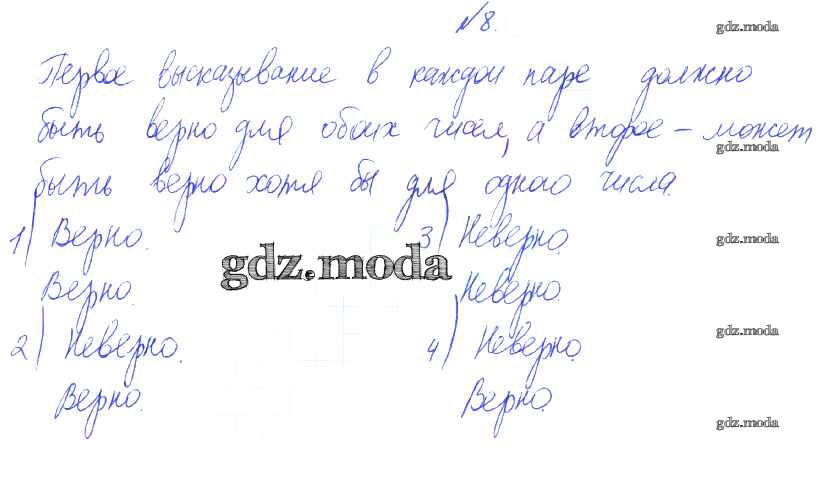 №8.
gdz.moda
Первое высказывание в каждой паре должно
быть верно для обоих чисел, а второе – может
gdz.moda
быть верно хотя бы для одного числа.
1) Верно. 3) Неверно.
gdz.moda
gdz.moda
Верно. Неверно.
2) Неверно. 4) Неверно.
gdz.moda
Верно. Верно.
gdz.moda